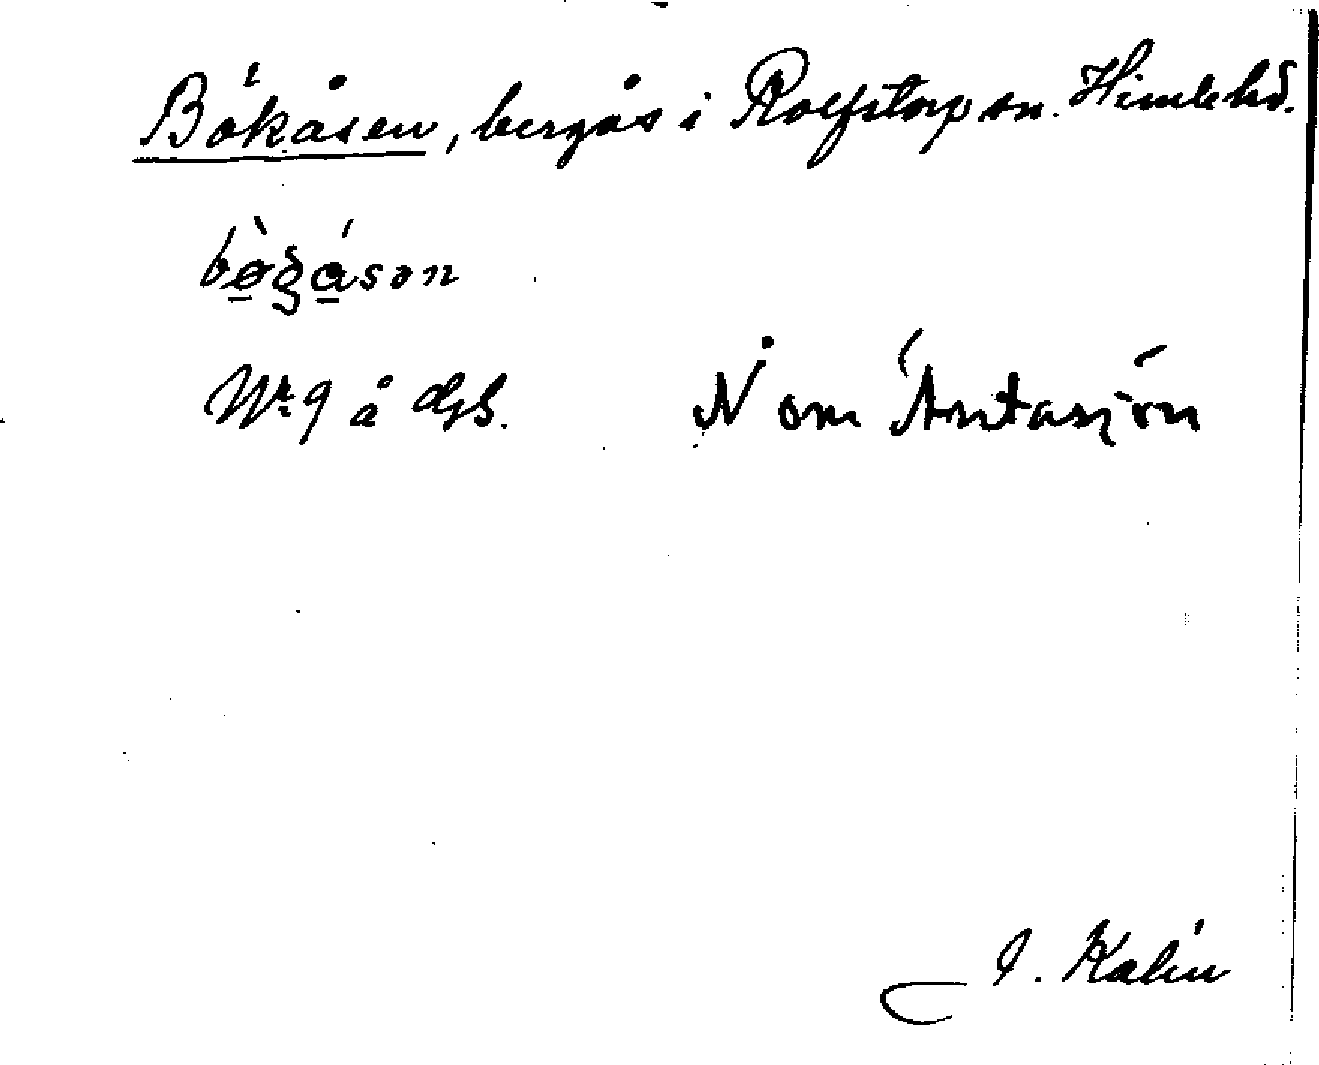 Bökåsen, bergås i Rolfstorp sn. Himle hd.
bø̀gásən
Nr. 9 å GS. N om Äntasjön
J. Kalén